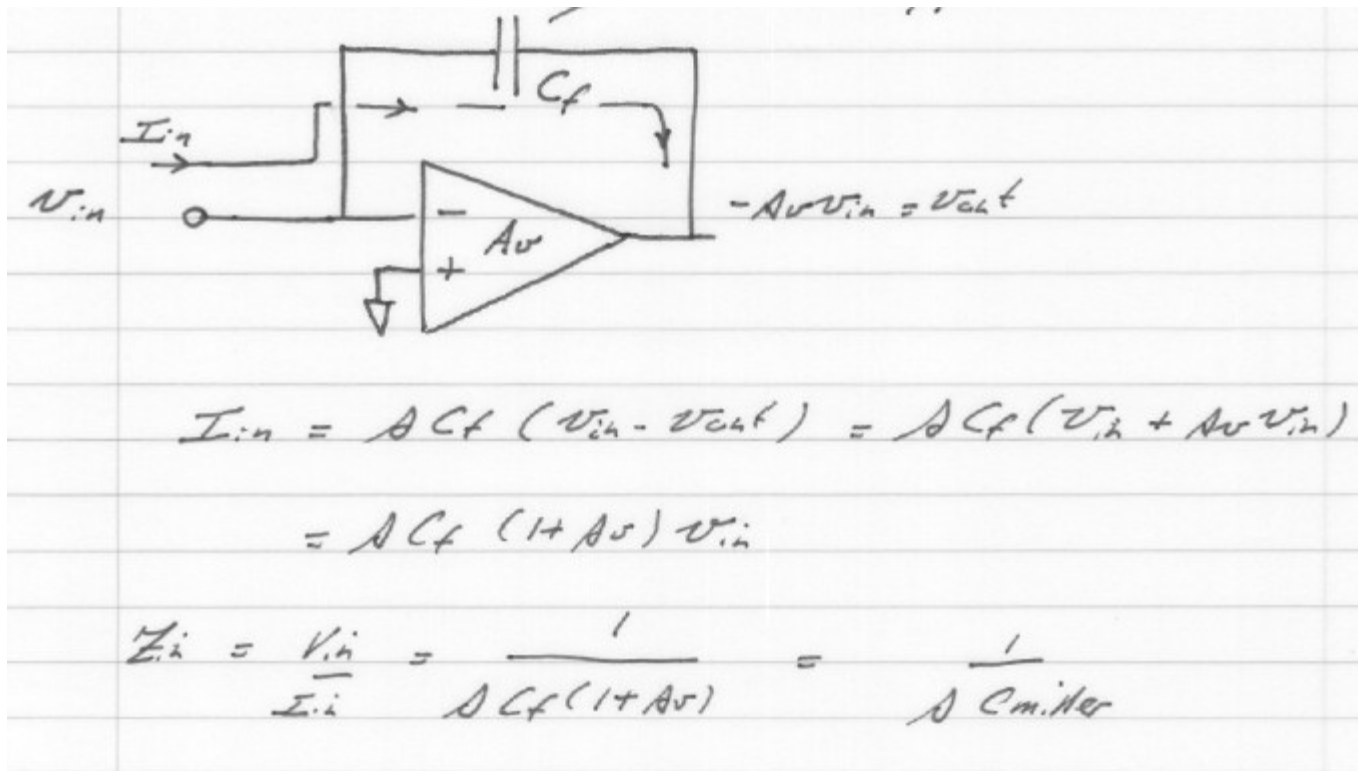 Cf
Iin
vin
-Av vin = vout
-
Av
+
Iin = s Cf (vin - vout) = s Cf (vin + Av vin)
= s Cf (1 + Av) vin
Zin = Vin / Iin = 1 / s Cf (1 + Av) = 1 / s Cmiller